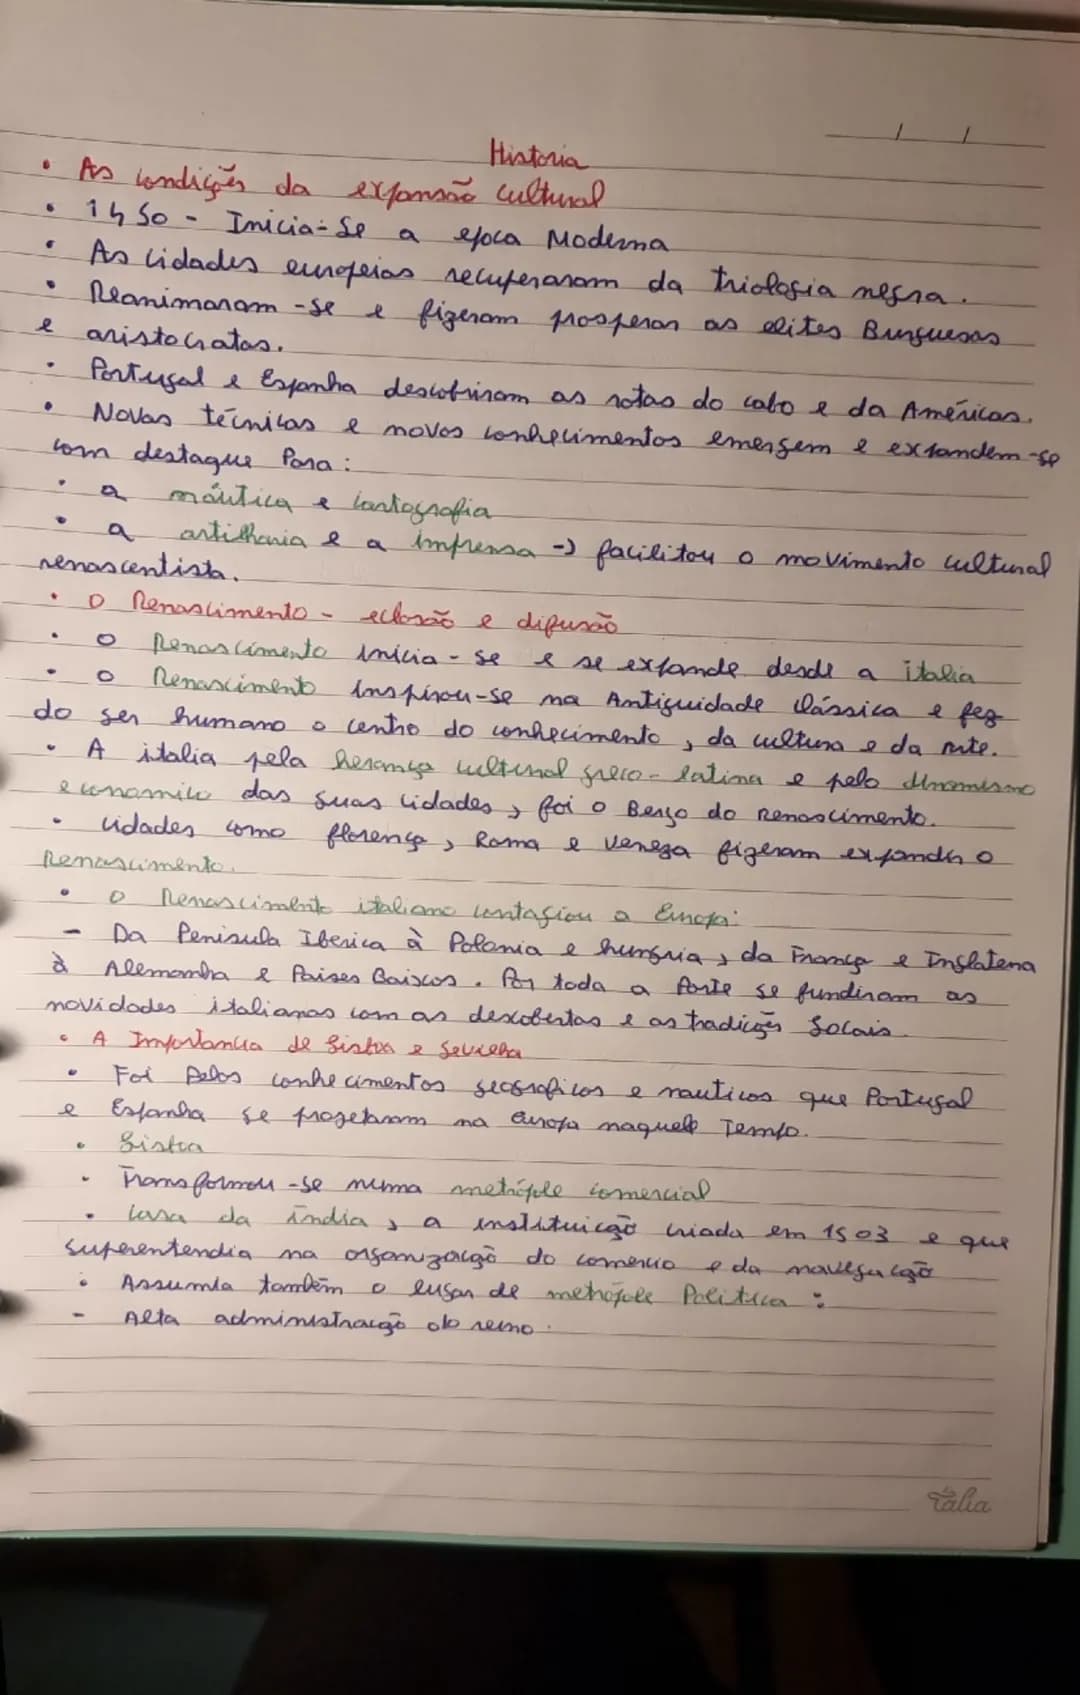 Historia
• As condições da expansão cultural
• 1450 - Inicia-se a epoca Moderna
• As cidades europeias recuperaram da triologia negra.
• Reanimaram-se e fizeram prosperar as elites Burguesas
e aristocratas.
• Portugal e Espanha descobriram as rotas do cabo e da Américas.
• Novas técnicas e novos conhecimentos emergem e expandem-se
com destaque Para:
• a náutica e cartografia
• a artilharia e a imprensa -> facilitou o movimento cultural
renascentista.
• O Renascimento - eclosão e difusão
• O Renascimento inicia-se e se expande desde a itália
• O Renascimento inspirou-se na Antiguidade Clássica e fez
do ser humano o centro do conhecimento, da cultura e da arte.
• A itália pela herança cultural greco-latina e pelo dinamismo
economico das suas cidades, foi o Berço do Renascimento.
• Cidades como florença, Roma e Veneza fizeram expandir o
Renascimento.
• O Renascimento italiano contagiou a Europa:
- Da Peninsula Iberica à Polonia e hungria, da França e Inglatena
à Alemanha e Paises Baixos. Por toda a Parte se fundiram as
novidades italianas com as descobertas e as tradições Locais.
• A Importancia de Lisboa e Sevilha
• Foi Pelos conhecimentos geograficos e nauticos que Portugal
e Espanha se progetaram na Europa naquele Tempo.
• Lisboa
• Transformou-se numa metrópole comercial
• Casa da Índia, a instituição criada em 1503 e que
superentendia na organização do comercio e da navegação
• Assumia também o lugar de metrópole Politica:
- Alta administração do reino.
Tália